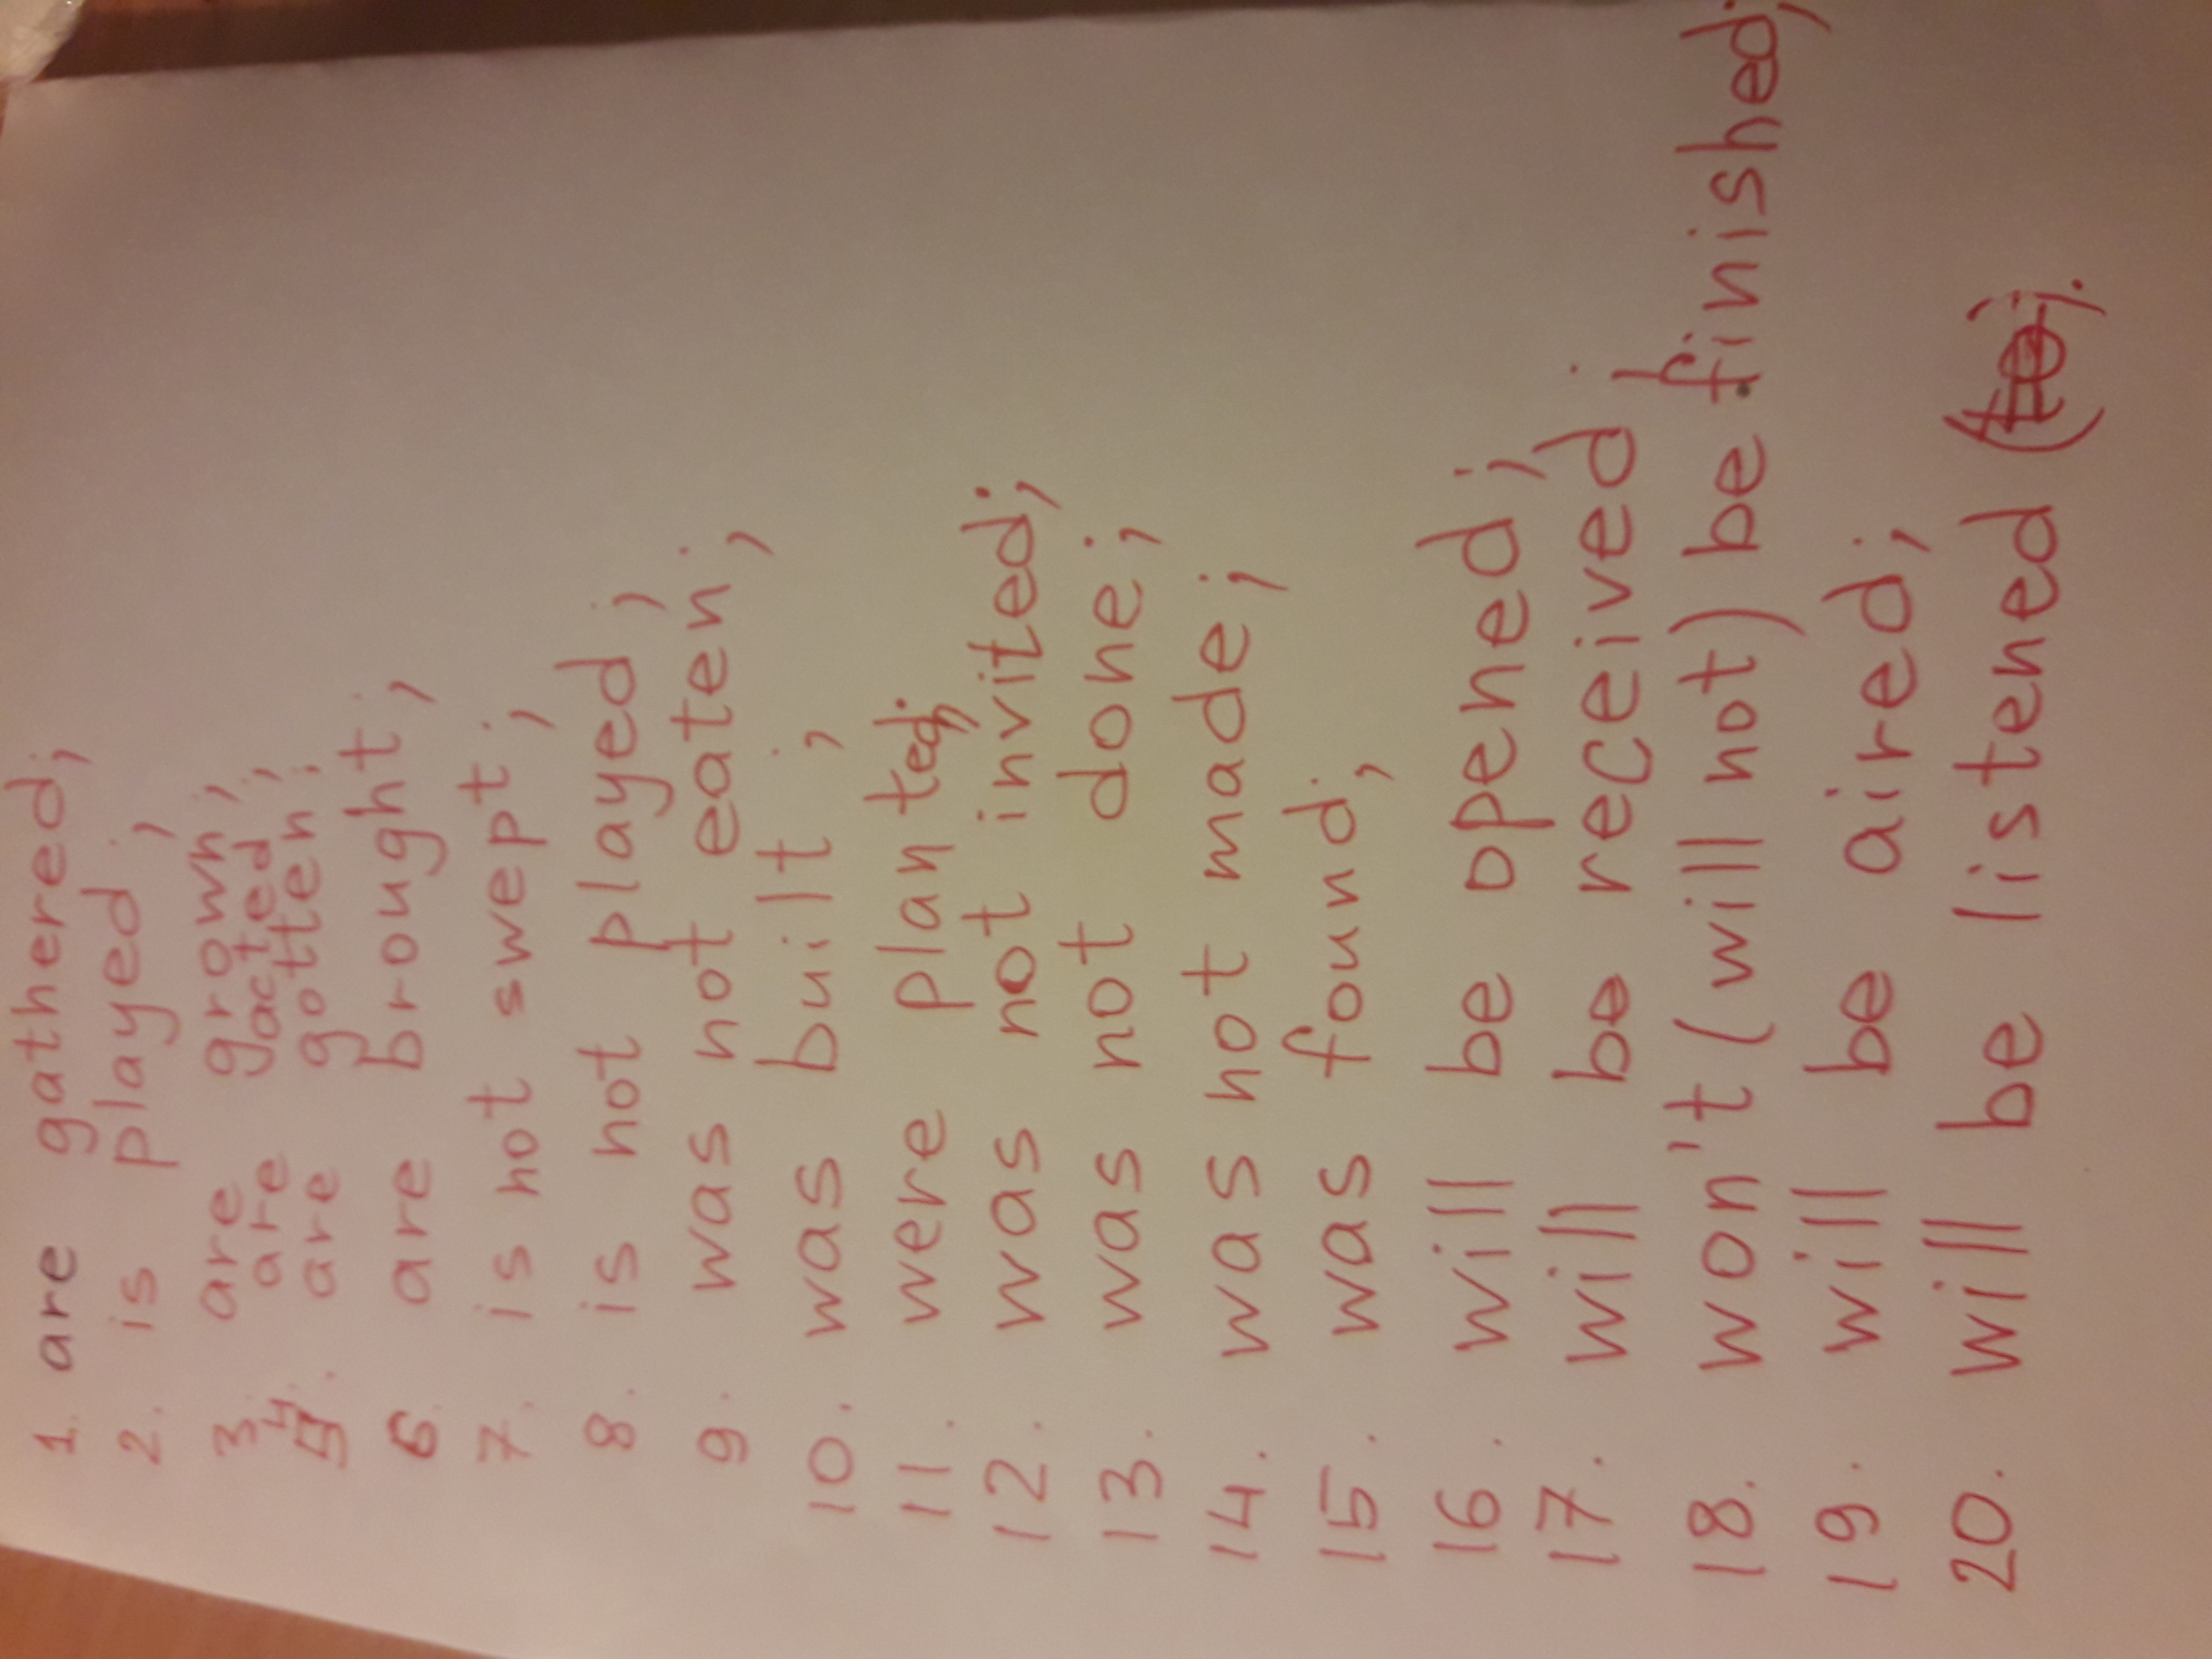 1. are gathered;
2. is played;
3. are grown;
4. are acted;
5. are gotten;
6. are brought;
7. is not swept;
8. is not played;
9. was not eaten;
10. was built;
11. were planted;
12. was not invited;
13. was not done;
14. was not made;
15. was found;
16. will be opened;
17. will be received;
18. won't (will not) be finished;
19. will be aired;
20. will be listened